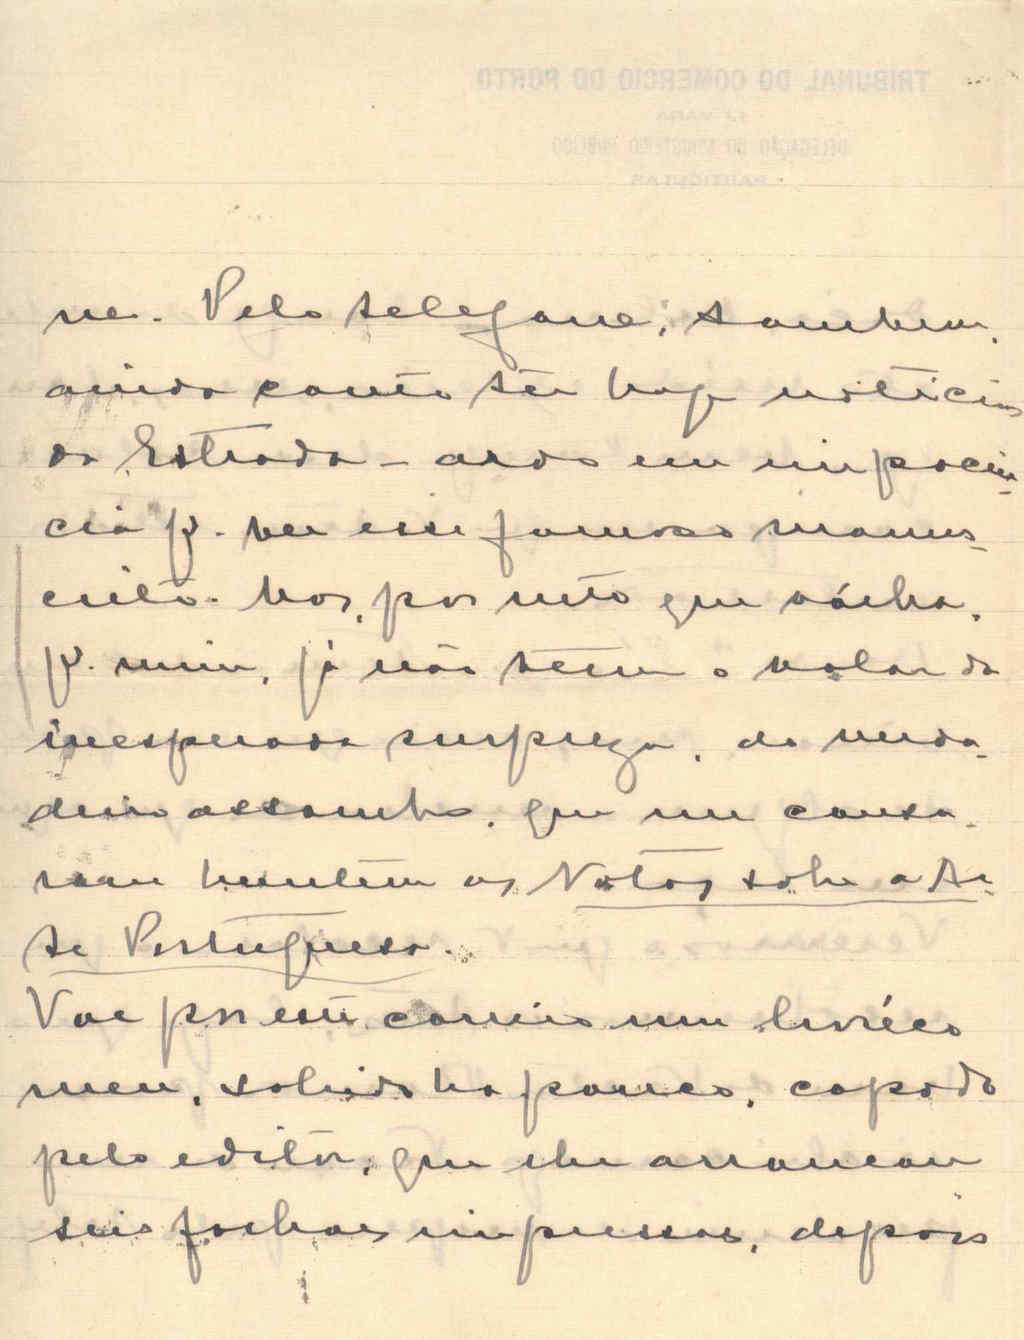 TRIBUNAL DO COMERCIO DO PORTO
1.ª VARA
DELEGAÇÃO DO MINISTERIO PUBLICO
PARTICULAR
me. Pelo telefone, tambem,
ainda conto ter hoje noticias
do Estrada - ardo em impacien-
cia p. ver esse famoso manus-
crito. Mas, por muito que valha,
p. mim, já não tem o valor da
inesperada surpreza, do verda-
deiro assombro, que me causa-
ram hontem as Notas sobre a Ar-
te Portuguesa.
Vae por este correio um livréco
meu, sahido ha pouco, capado
pelo editor, que lhe arrancou
seis folhas impressas, depois